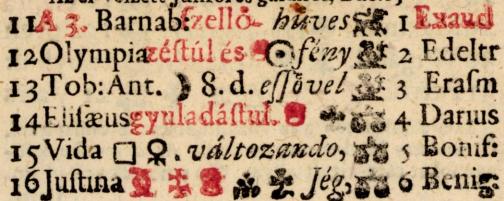 11 A 3. Barnab: zellô- hüves 1 Exaud
12 Olympia zéstúl és ☉ fény 2 Edeltr
13 Tob: Ant. ☽ 8. d. eſſővel 3 Eraſm
14 Eliſæus gyuladáſtul. 4 Darius
15 Vida □ ♀. változando, 5 Bonif:
16 Juſtina Jég, 6 Benig: